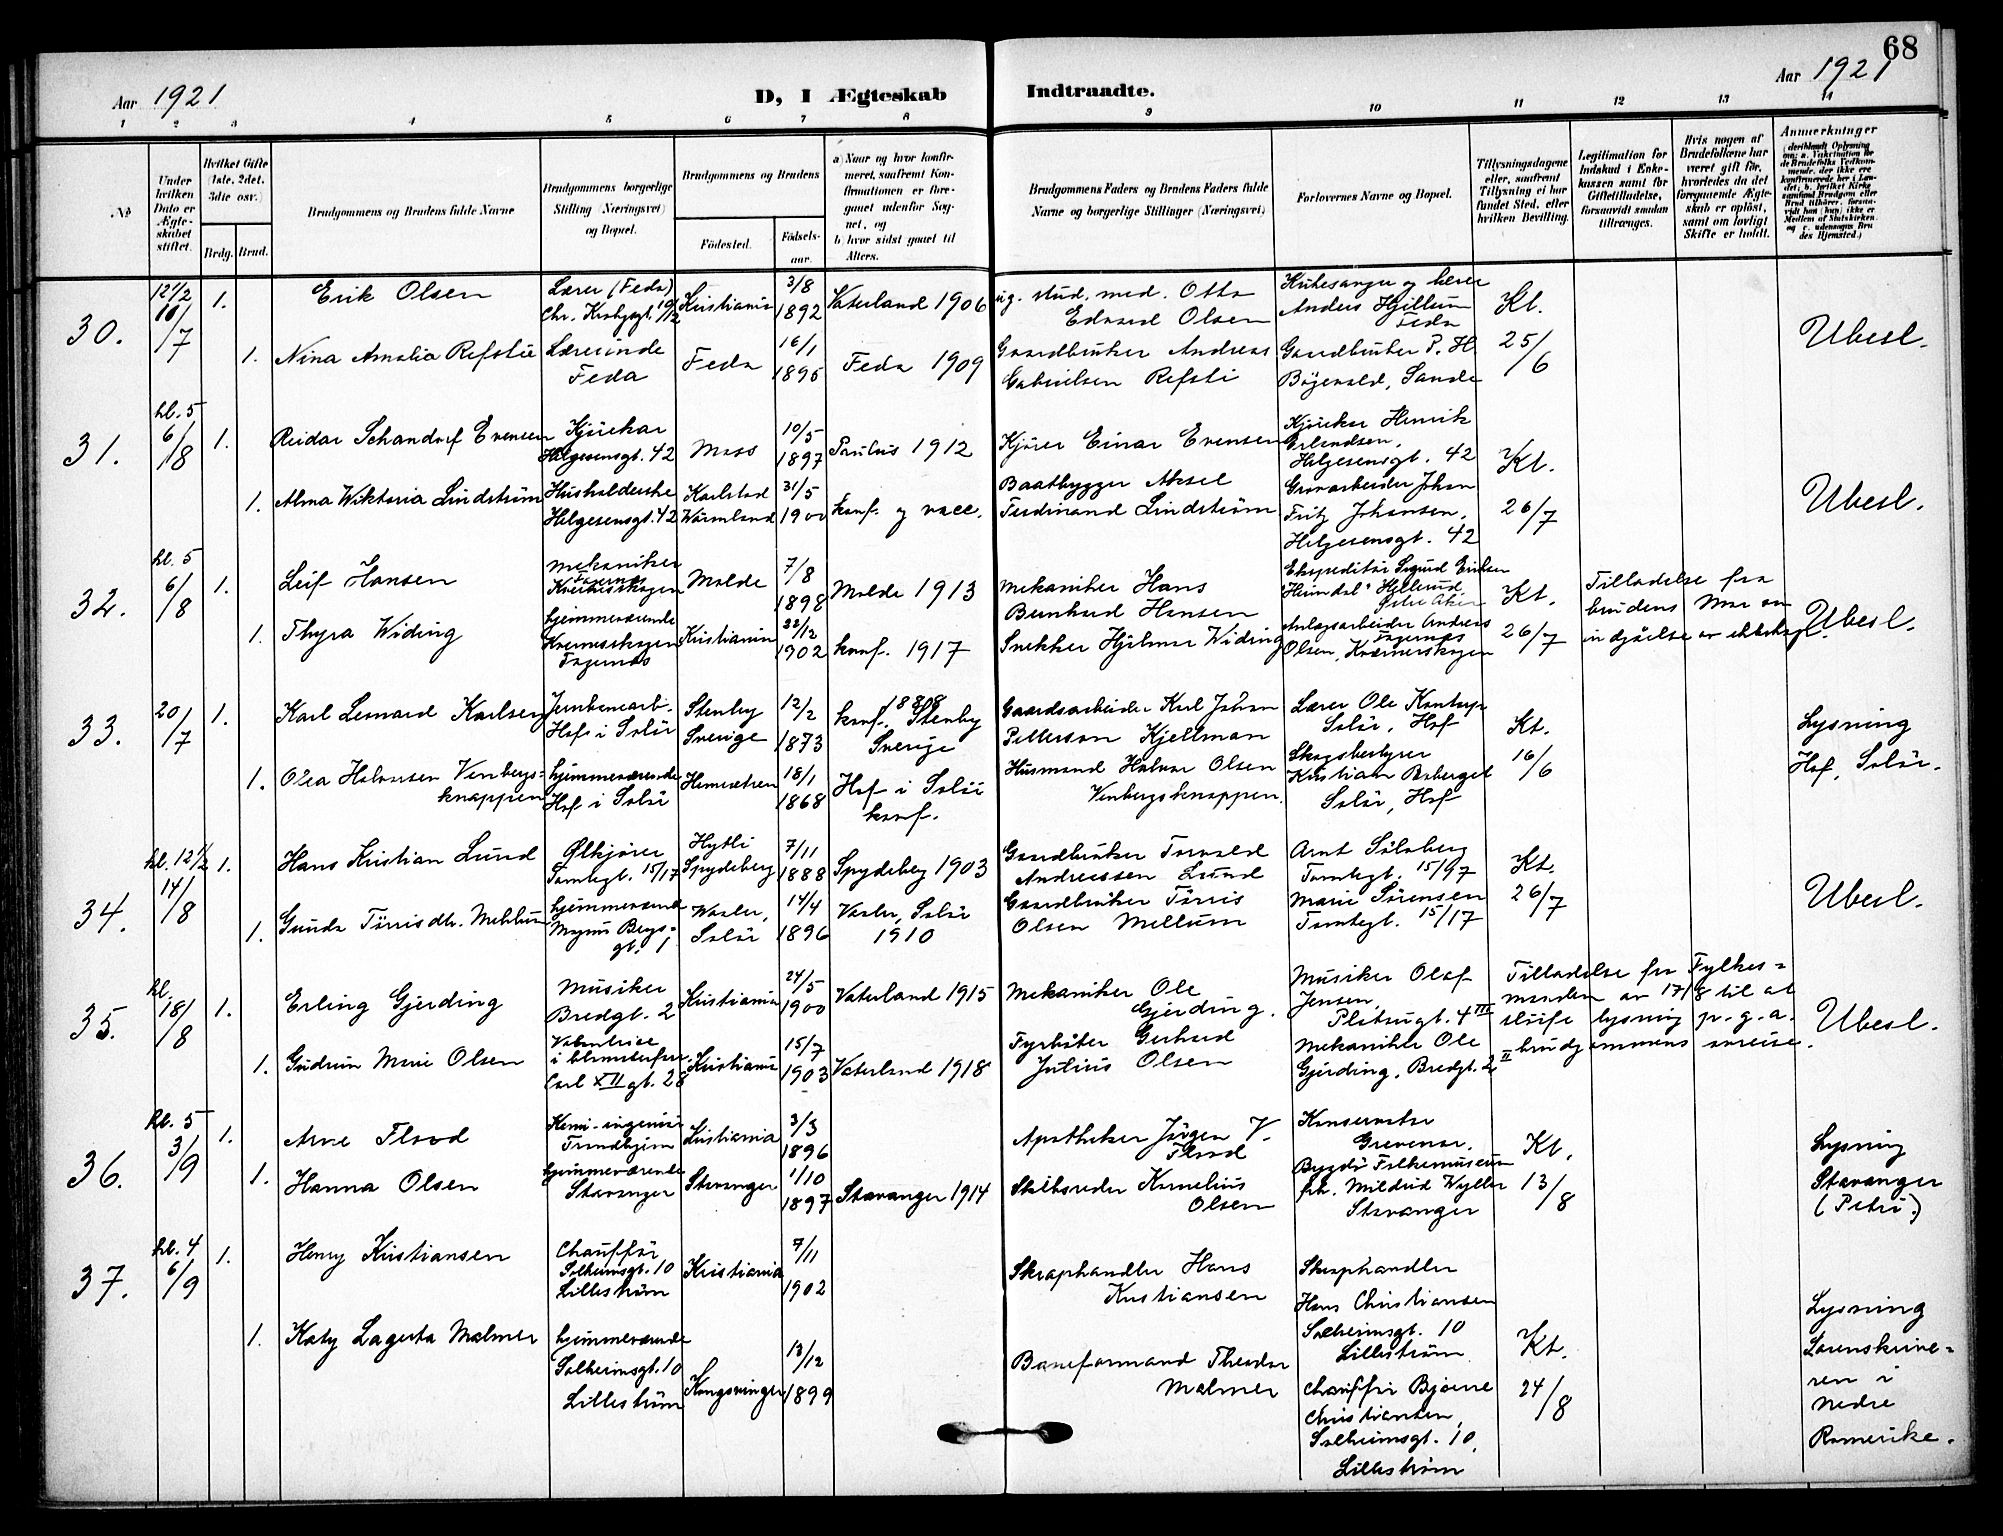 68
Aar 1921
D, I Ægteskab Indtraadte.
Aar 1921
1 2 3 4 5 6 7 8 9 10 11 12 13 14
No
Under hvilken Dato er Ægteskabet stiftet.
Hvilket Gifte (1ste, 2det, 3die osv.)
Brdg. Brud.
Brudgommens og Brudens fulde Navne
Brudgommens borgerlige Stilling (Næringsvei) og Bopæl.
Brudgommens og Brudens
Fødested.
Fødselsaar.
a) Naar og hvor konfirmeret, saafremt Konfirmationen er foregaaet udenfor Sognet, og
b) hvor sidst gaaet til Alters.
Brudgommens Faders og Brudens Faders fulde Navne og borgerlige Stillinger (Næringsvei)
Forlovernes Navne og Bopæl.
Tillysningsdagene eller, saafremt Tillysning ei har fundet Sted, efter hvilken Bevilling.
Legitimation for Indskud i Enkekassen samt for Giftetilladelse, forsaavidt saadan tiltrænges.
Hvis nogen af Brudefolkene har været gift før, hvorledes da det foregaaende Ægteskab er opløst, samt om lovligt Skifte er holdt.
Anmerkninger
30.
12½
16/7
1.
Erik Olsen
Lærer (Feda)
Kristiania
3/8
1892
Vaterland 1906
stud. med. Otto
Edvard Olsen
Kirkesanger og lærer
Anders Hjillum
Feda
Kt.
25/6
Ubesl.
1.
Nina Amalia Refsti
Lærerinde
Feda
Feda
16/1
1895
Feda 1909
Gaardbruker Andreas
Gabrielsen Refsti
Gaardbruker P. H.
Bøgevald, Sande
31.
kl. 5
6/8
1.
Reidar Schandorf Evensen
Kjørekar
Helgesensgt. 42
Moss
10/5
1897
Paulus 1912
Kjører Einar Evensen
Kjører Henrik
Erlandsen,
Helgesensgt. 42
Kt.
26/7
Ubesl.
1.
Alma Wiktoria Lindstrøm
Husholderske
Helgesensgt. 42
Karlstad
Wärmland
31/5
1900
konf. og vacc.
Baatbygger Aksel
Ferdinand Lindstrøm
Grovarbeider Johan
Fritz Johansen,
Helgesensgt. 42
32.
kl. 5
6/8
1.
Leif Hansen
Mekaniker
Fagernes
Molde
7/8
1898
Molde 1913
Mekaniker Hans
Bernhard Hansen
Ekspeditør Sigurd Eriksen
"Heimdal" Hellerud
Østre Aker
Kt.
26/7
Tilladelse fra
brudens Mor om
indgåelse av ekteskap.
Ubesl.
1.
Thyra Widing
hjemmeværende
Kværnerskogen
Fagernes
Kristiania
22/12
1902
konf. 1917
Snekker Hjalmar Widing
Anlægsarbeider Andreas
Fagernes
Olsen, Kværnerskogen
33.
20/7
1.
Karl Leonard Karlsen
Jernbanearb.
Hof i Solør
Stenby
Sverige
12/2
1873
1888
konf. Stenby
Sverige
Gaardsarbeider Karl Johan
Petterson Kjellman
Lærer Ole Kontorp
Solør, Hof
Kt.
16/6
Lysning
Hof, Solør.
1.
Olea Halvorsen Venbergs-
knappen
hjemmeværende
Hof i Solør
18/1
1868
Hof i Solør
konf.
Husmand Halvor Olsen
Venbergsknappen.
Skogbestyrer
Kristian Berberget
Solør, Hof
34.
kl. 12½
14/8
1.
Hans Kristian Lund
Ølkjører
Tomtegt. 15/17
Hytli
Spydeberg
7/11
1888
Spydeberg 1903
Gaardbruker Torvald
Andreassen Lund
Arnt Solberg
Tomtegt. 15/97
Kt.
26/7
Ubesl.
1.
Gunda Tørrisdtr. Mellum
hjemmeværende
Magnus Bergs-
gt. 1
Vaaler,
Solør
14/4
1896
Vaaler, Solør
1910
Gaardbruker Tørris
Olsen Mellum
Marie Sørensen
Tomtegt. 15/17
35.
kl.
18/8
1.
Erling Gjerding
Musiker
Bredgt. 2
Kristiania
24/5
1900
Vaterland 1915
Mekaniker Ole
Gjerding.
Musiker Olaf
Jensen,
Platousgt. 4 III
Tilladelse fra Fylkes-
manden av 17/8 til at
sløife lysning p. g. a.
brudgommens avreise.
Ubesl.
1.
Gudrun Marie Olsen
i blomsterfor.
Carl XII gt. 28
Kristiania
15/7
1903
Vaterland 1918
Fyrbøter Gerhard
Julius Olsen
Mekaniker Ole
Gjerding, Bredgt. 2 II
36.
kl. 5
3/9
1.
Arne Flood
Kemi-ingeniør
Trondhjem
Kristiania
3/3
1896
Apotheker Jørgen V.
Flood
Konservator
Grevenor,
Bygdø Folkemuseum
Kt.
13/8
Lysning
Stavanger
(Petri.)
1.
Hanna Olsen
hjemmeværende
Stavanger
Stavanger
1/10
1897
Stavanger 1914
Skibsreder Kornelius
Olsen
frk. Mildrid Wyller
Stavanger
37.
kl. 4
6/9
1.
Henry Kristiansen
Chauffør
Solheimsgt. 10
Lillestrøm
Kristiania
7/11
1902
Skraphandler Hans
Kristiansen
Skraphandler
Hans Christiansen
Solheimsgt. 10
Lillestrøm
Kt.
24/8
Lysning
Sorenskrive-
ren i
Nedre
Romerike.
1.
Katy Lagerta Malmer
hjemmeværende
Solheimsgt. 10
Lillestrøm
Kongsvinger
13/12
1899
Baneformand Theodor
Malmer
Chauffør Bjarne
Christiansen,
Solheimsgt. 10,
Lillestrøm